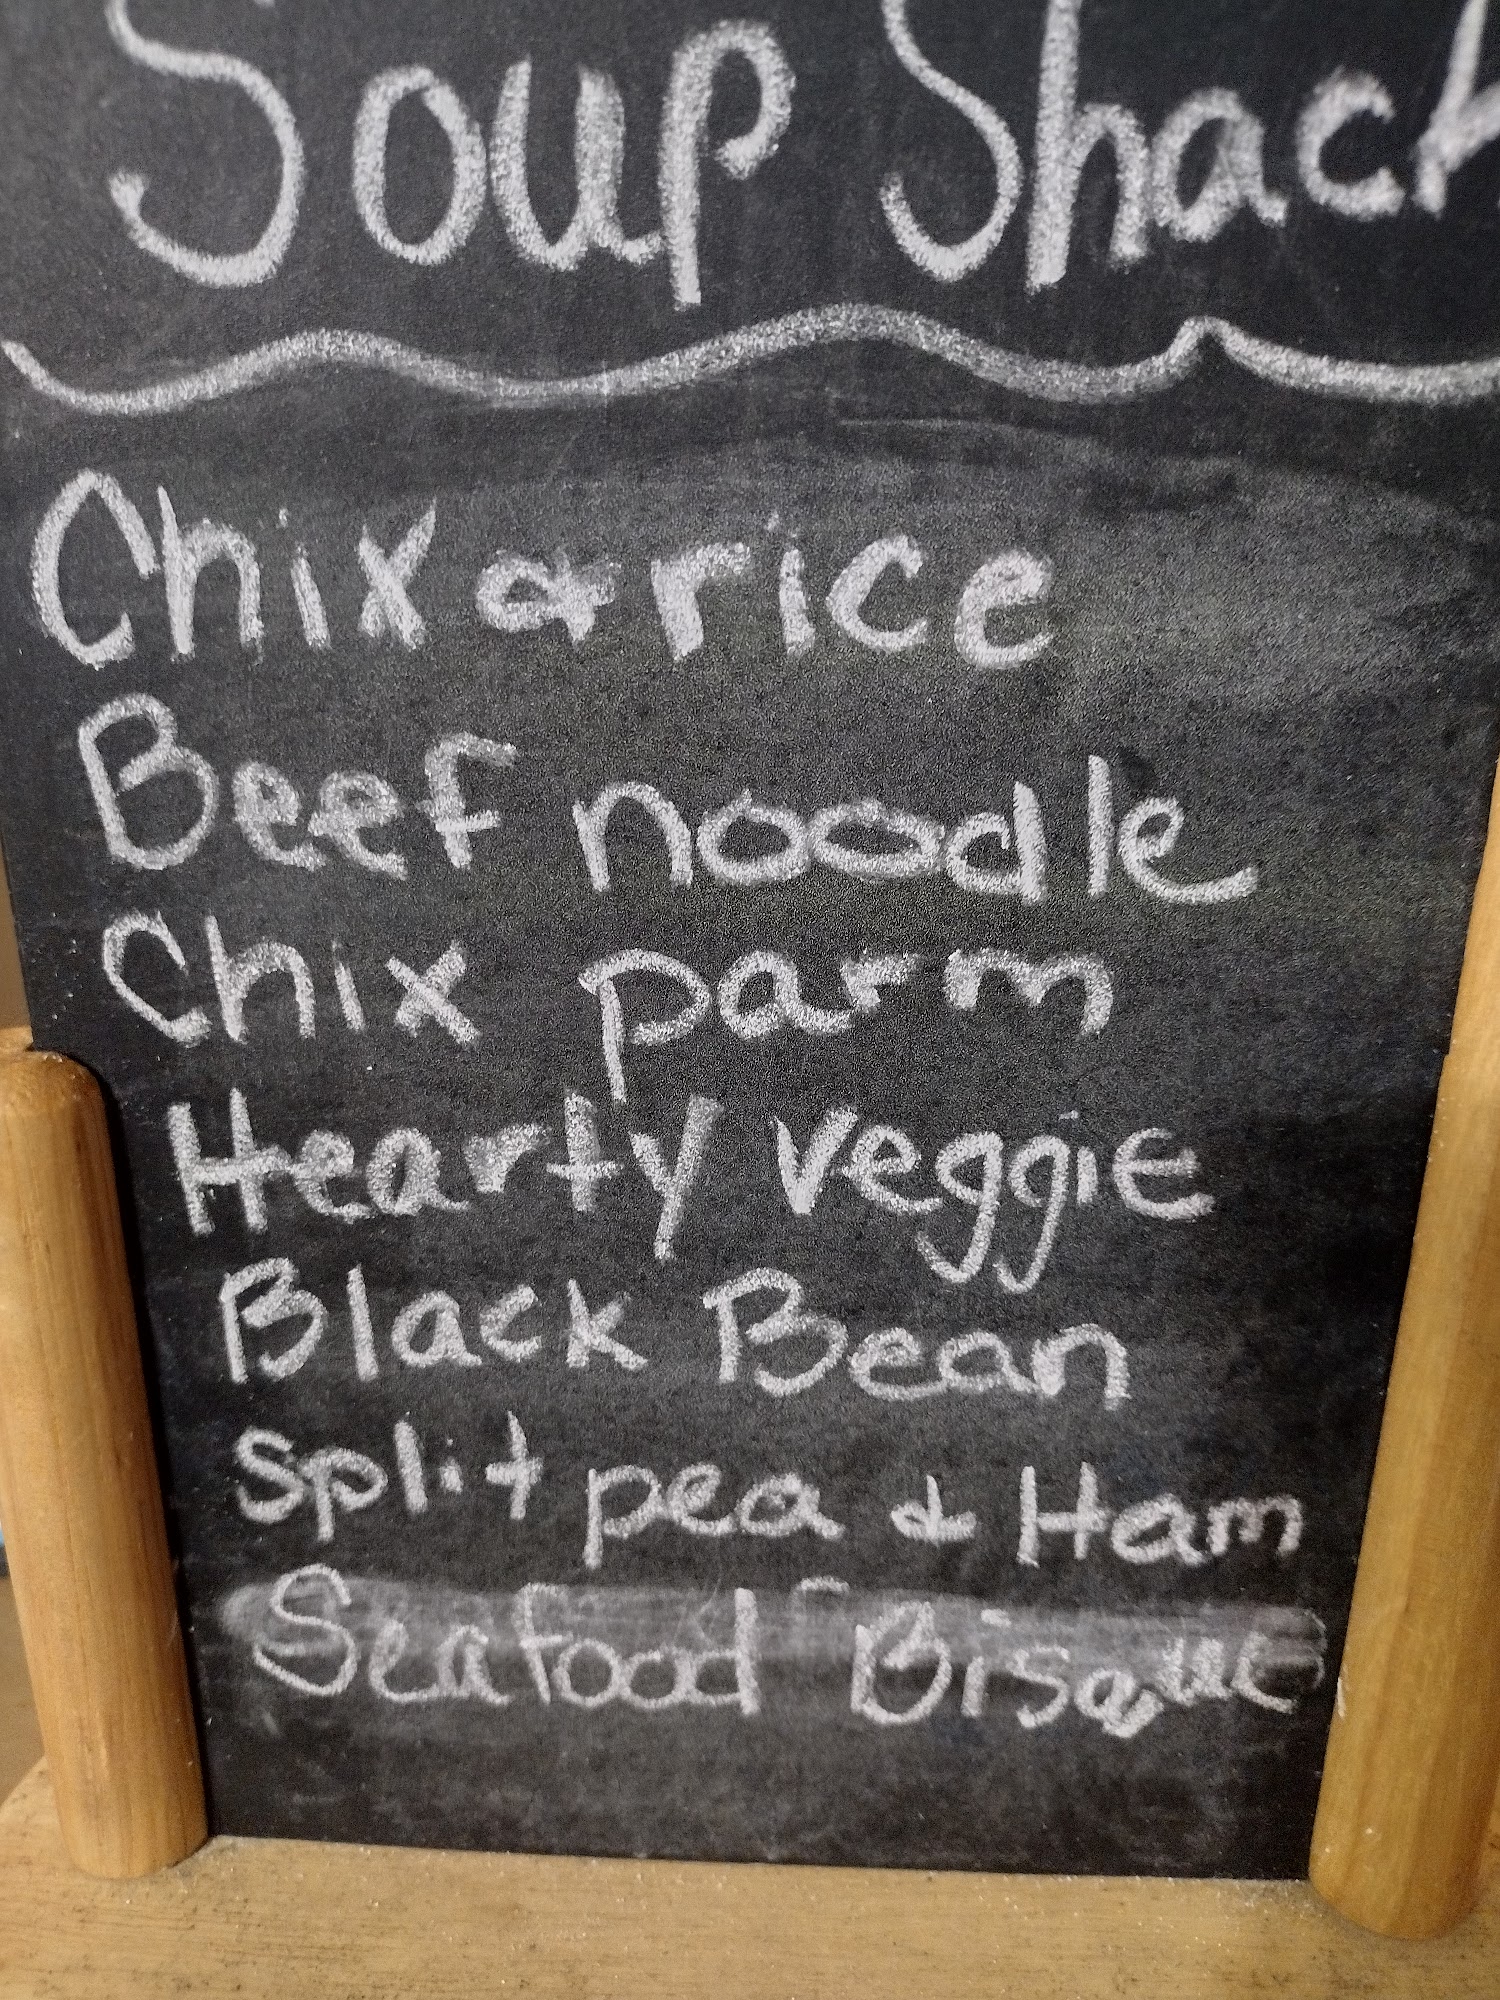 Soup Shack
Chix & rice
Beef noodle
Chix parm
Hearty veggie
Black Bean
split pea & Ham
Seafood Bisque